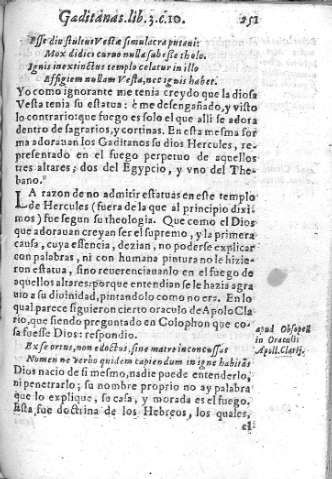 Gaditanas. lib. 3. c. 10. 251
Esse diu stultus Vestæ simulacra putaui:
Mox didici curuo nulla subesse tholo.
Ignis inextinctus templo celatur in illo
Effigiem nullam Vesta, nec ignis habet.
Yo como ignorante me tenia creydo que la diosa
Vesta tenia su estatua: è me desengañado, y visto
lo contrario: que fuego es solo el que alli se adora
dentro de sagrarios, y cortinas. En esta mesma for
ma adorauan los Gaditanos su dios Hercules, re-
presentado en el fuego perpetuo de aquellos
tres altares; dos del Egypcio, y vno del The-
bano.
LA razon de no admitir estatuas en este templo
de Hercules (fuera de la que al principio dixi-
mos) fue segun su theologia. Que como el Dios
que adorauan creyan ser el supremo, y la primera
causa, cuya essencia, dezian, no poderse explicar
con palabras, ni con humana pintura no le hizie-
ron estatua, sino reuerenciauanlo en el fuego de
aquellos altares: porque entendian se le hazia agra
uio a su diuinidad, pintandolo como no era. En lo
qual parece siguieron cierto oraculo de Apolo Cla
rio, que siendo preguntado en Colophon que co-
sa fuesse Dios: respondio.
apud Obsopeū
in Oraculis
Apoll. Clarij.
Ex se ortus, non edoctus, sine matre inconcussus
Nomen ne verbo quidem capiendum in igne habitās
Dios nacio de si mesmo, nadie puede entenderlo,
ni penetrarlo; su nombre proprio no ay palabra
que lo explique, su casa, y morada es el fuego.
Esta fue doctrina de los Hebreos, los quales,
el